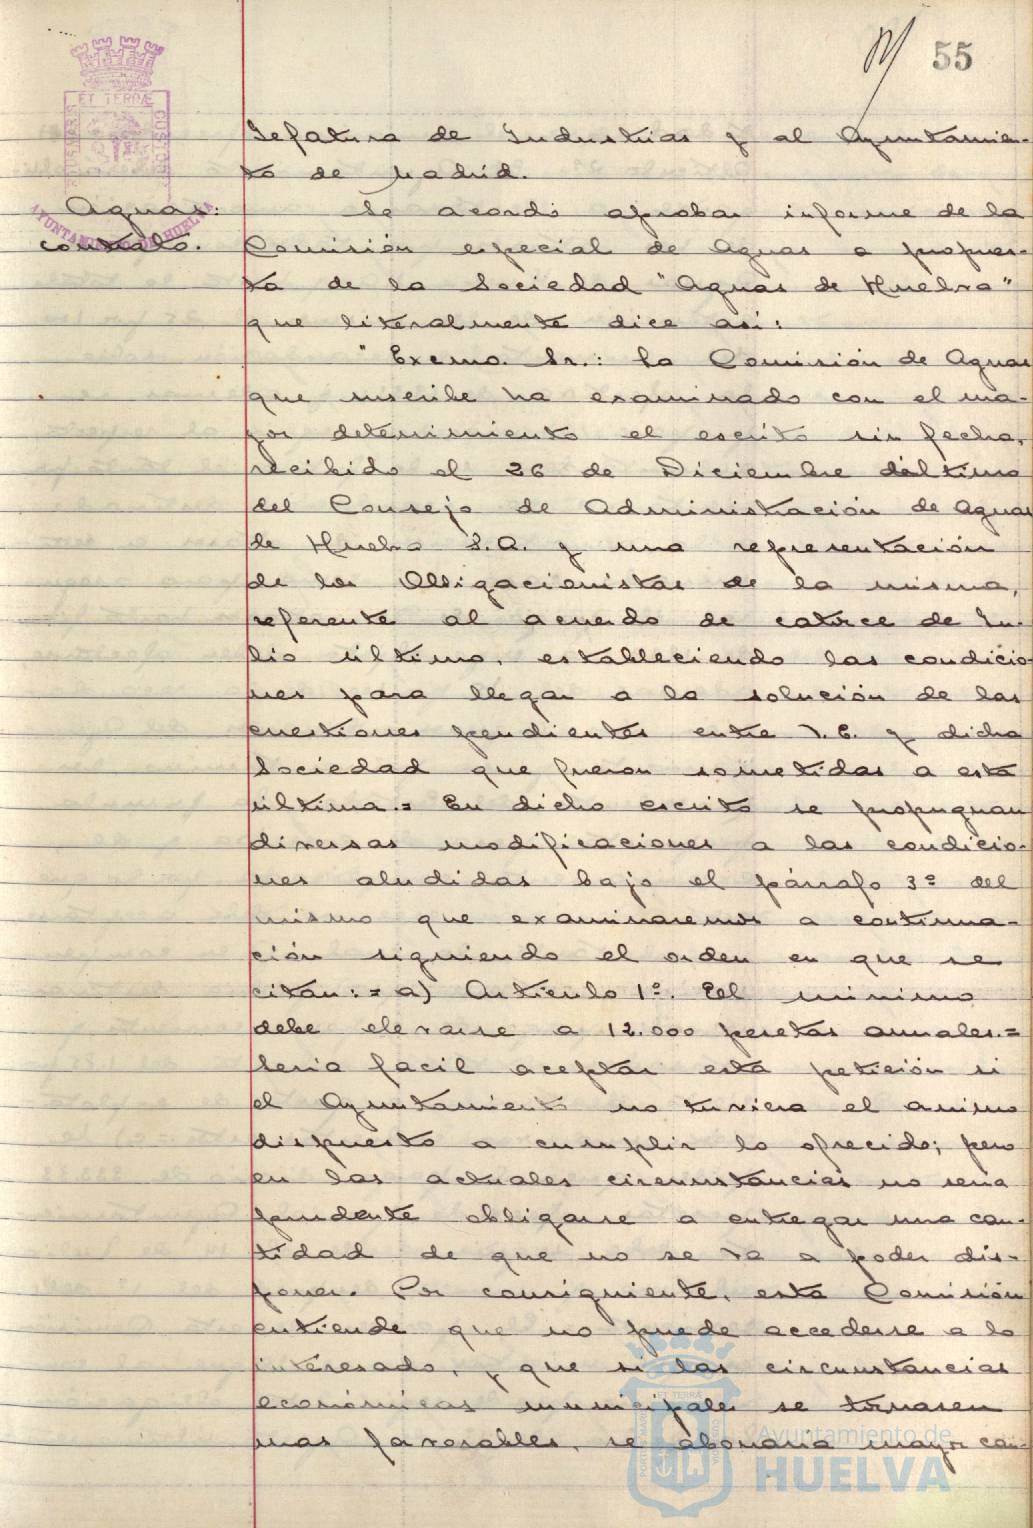 55
Jefatura de Industrias y al Ayuntamien-
to de Madrid.
Aguas:
contrato.
Se acordó aprobar informe de la
Comisión especial de Aguas a propues-
ta de la Sociedad "Aguas de Huelva"
que literalmente dice asi:
"Excmo. Sr.: La Comisión de Aguas
que suscribe ha examinado con el ma-
yor detenimiento el escrito sin fecha,
recibido el 26 de Diciembre último
del Consejo de Administración de Aguas
de Huelva S.A. y una representación
de los Obligacionistas de la misma,
referente al acuerdo de catorce de Ju-
lio último, estableciendo las condicio-
nes para llegar a la solución de las
cuestiones pendientes entre V.E. y dicha
Sociedad que fueron sometidas a esta
última.= En dicho escrito se propugnan
diversas modificaciones a las condicio-
nes aludidas bajo el párrafo 3º del
mismo que examinaremos a continua-
ción siguiendo el orden en que se
citan:= a) Artículo 1º. El minimo
debe elevarse a 12.000 pesetas anuales.=
Seria facil aceptar esta petición si
el Ayuntamiento no tuviera el animo
dispuesto a cumplir lo ofrecido; pero
en las actuales circunstancias no seria
prudente obligarse a entregar una can-
tidad de que no se va a poder dis-
poner. Por consiguiente, esta Comisión
entiende que no puede accederse a lo
interesado, y que si las circunstancias
económicas municipales se tornasen
mas favorables, se abonaria mayor can-
AYUNTAMIENTO DE HUELVA
ET TERRÆ
Ayuntamiento de
HUELVA